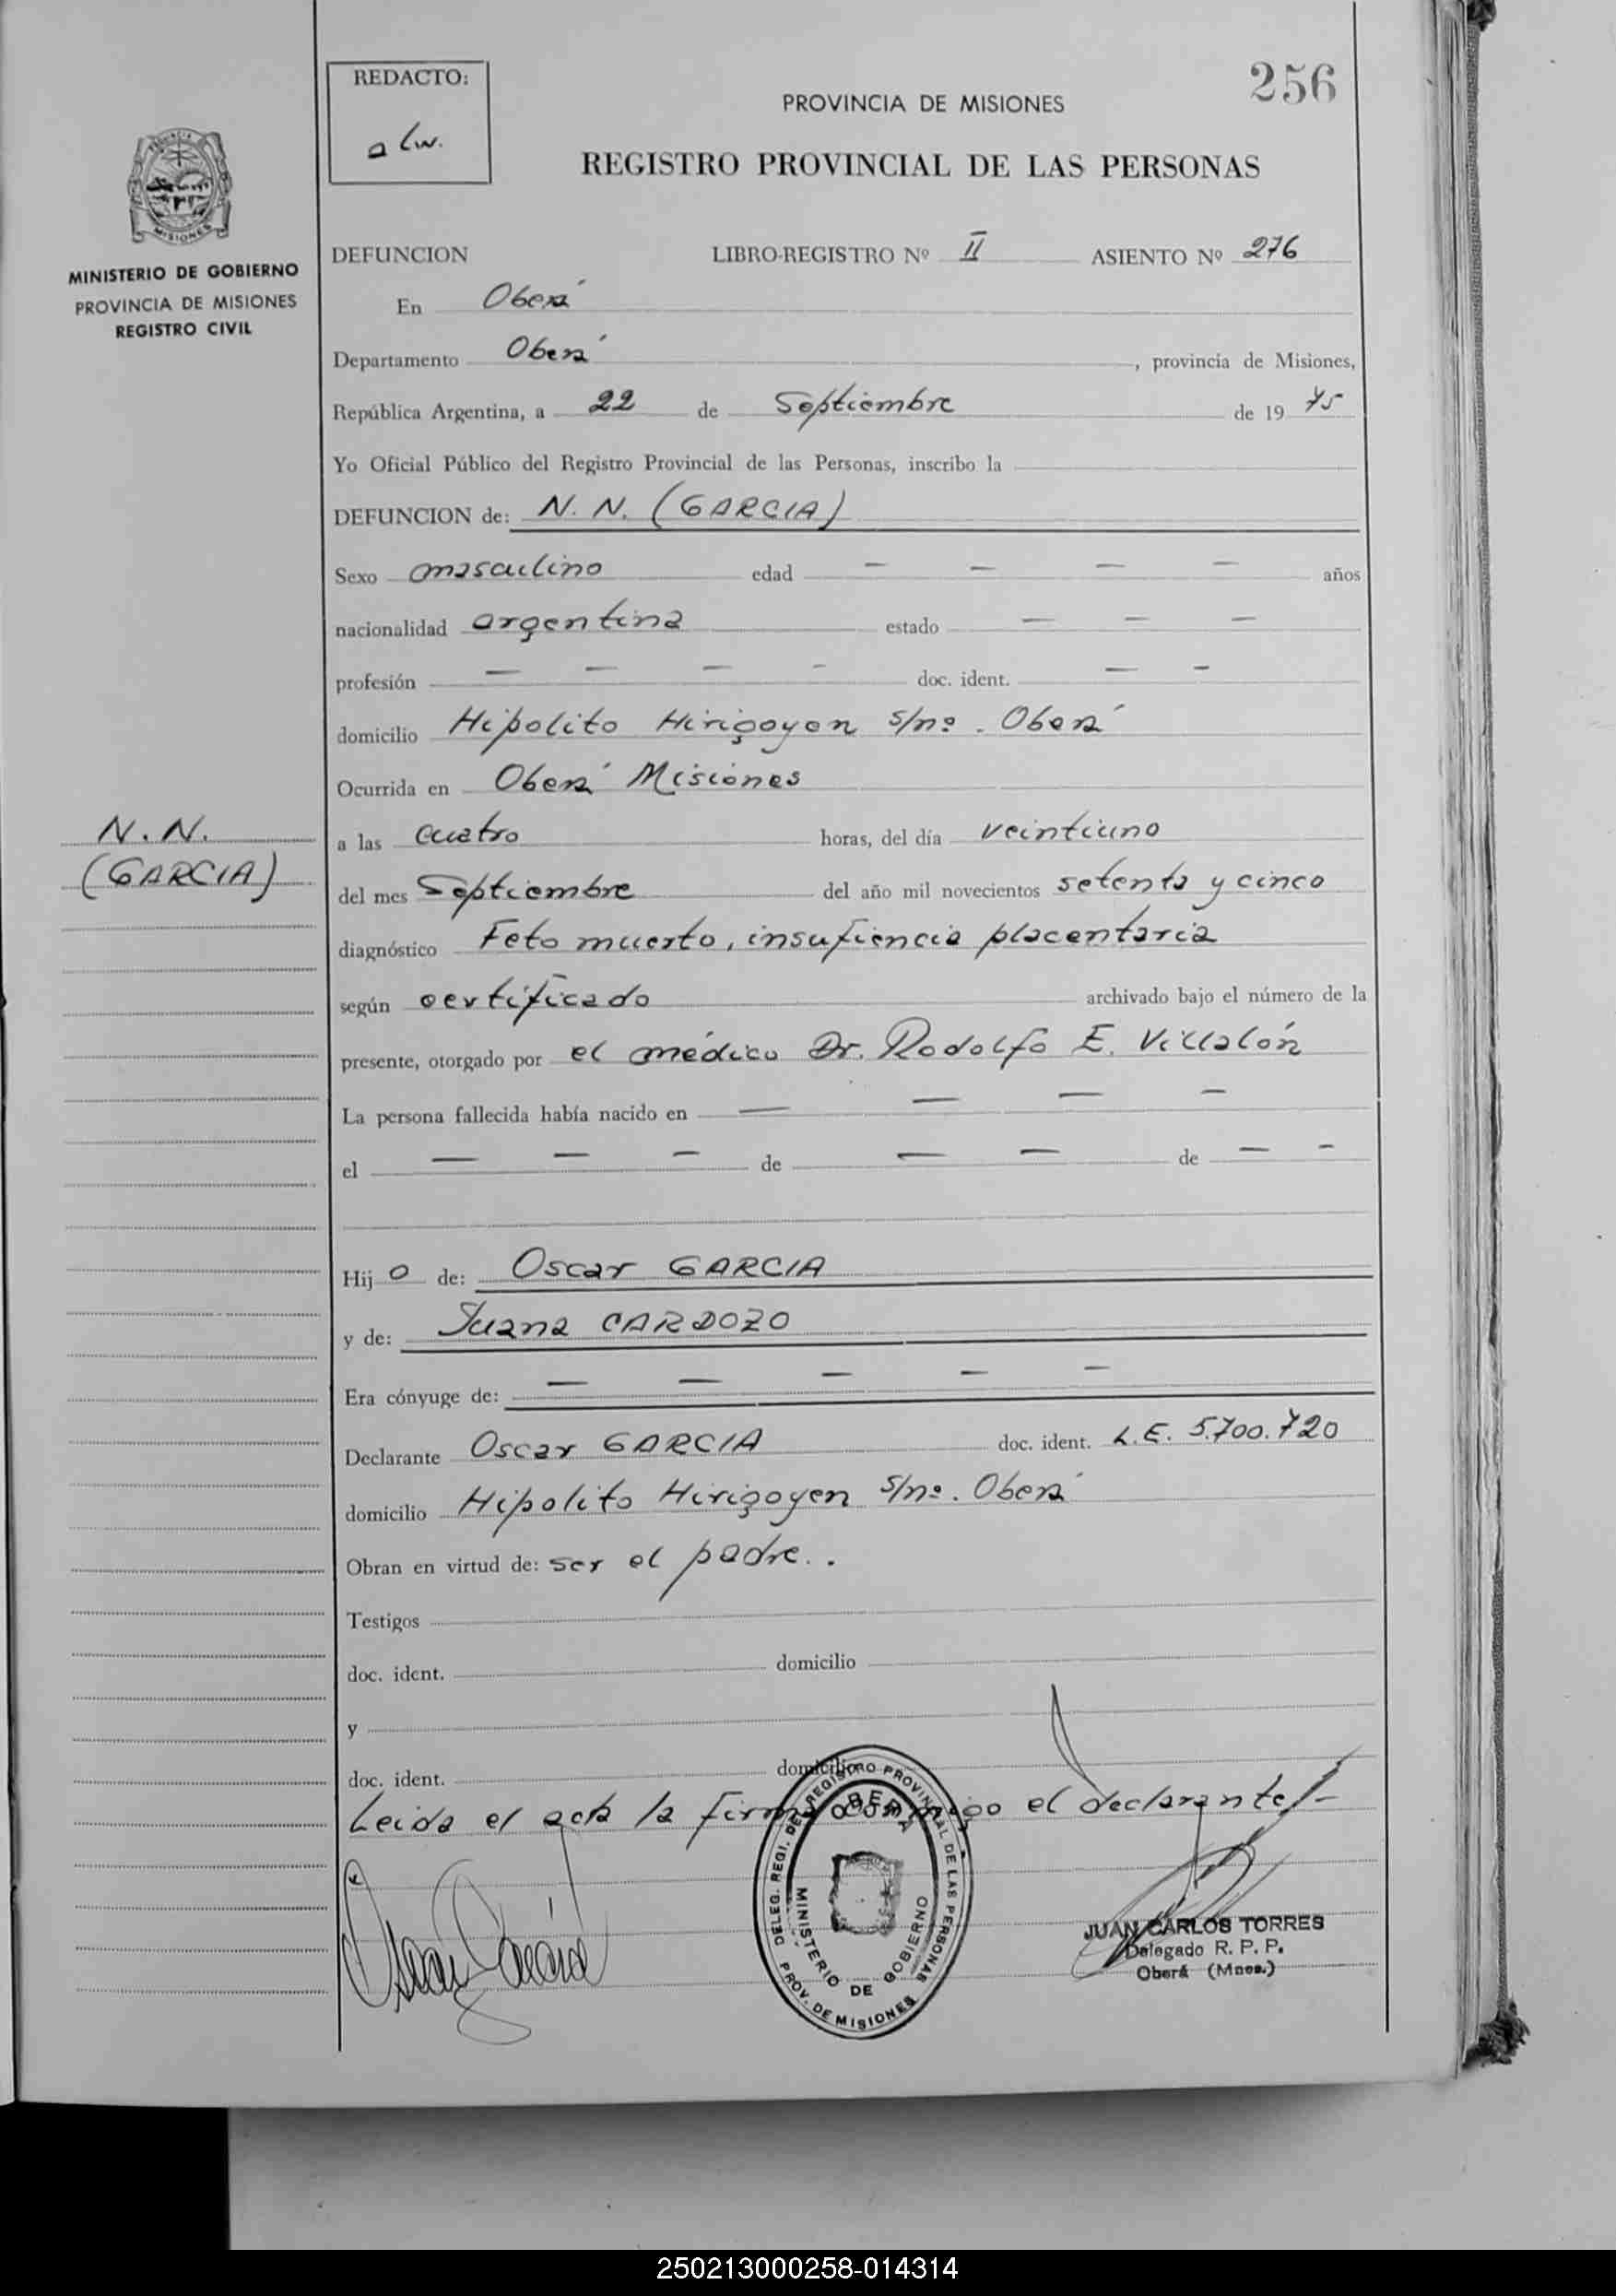 256
REDACTO:
PROVINCIA DE MISIONES
REGISTRO PROVINCIAL DE LAS PERSONAS
MISIONES
MINISTERIO DE GOBIERNO
PROVINCIA DE MISIONES
REGISTRO CIVIL
DEFUNCION LIBRO-REGISTRO Nº II ASIENTO Nº 276
En Oberá
Departamento Oberá, provincia de Misiones,
República Argentina, a 22 de Septiembre de 19 75
Yo Oficial Público del Registro Provincial de las Personas, inscribo la
DEFUNCION de: N. N. (GARCIA)
Sexo masculino edad — — — — años
nacionalidad argentina estado — — —
profesión — — — - doc. ident. — -
domicilio Hipolito Hirigoyen s/nº. Oberá
Ocurrida en Oberá Misiones
N.N.
(GARCIA)
a las cuatro horas, del día veintiuno
del mes Septiembre del año mil novecientos setenta y cinco
diagnóstico Feto muerto, insufiencia placentaria
según certificado archivado bajo el número de la
presente, otorgado por el médico Dr. Rodolfo E. Villalón
La persona fallecida había nacido en — — — —
el — — — de — — de — -
Hij o de: Oscar GARCIA
y de: Juana CARDOZO
Era cónyuge de: — — — — —
Declarante Oscar GARCIA doc. ident. L.E. 5.700.720
domicilio Hipolito Hirigoyen s/nº. Oberá
Obran en virtud de: ser el padre..
Testigos
doc. ident. domicilio
y
doc. ident. domicilio
Leida el acta la firma conmigo el declarante/-
Oscar García
DELEG. REGI. DEL REGISTRO PROVINCIAL DE LAS PERSONAS
OBERA
MINISTERIO DE GOBIERNO
PROV. DE MISIONES
JUAN CARLOS TORRES
Delegado R. P. P.
Oberá (Mnes.)
250213000258-014314